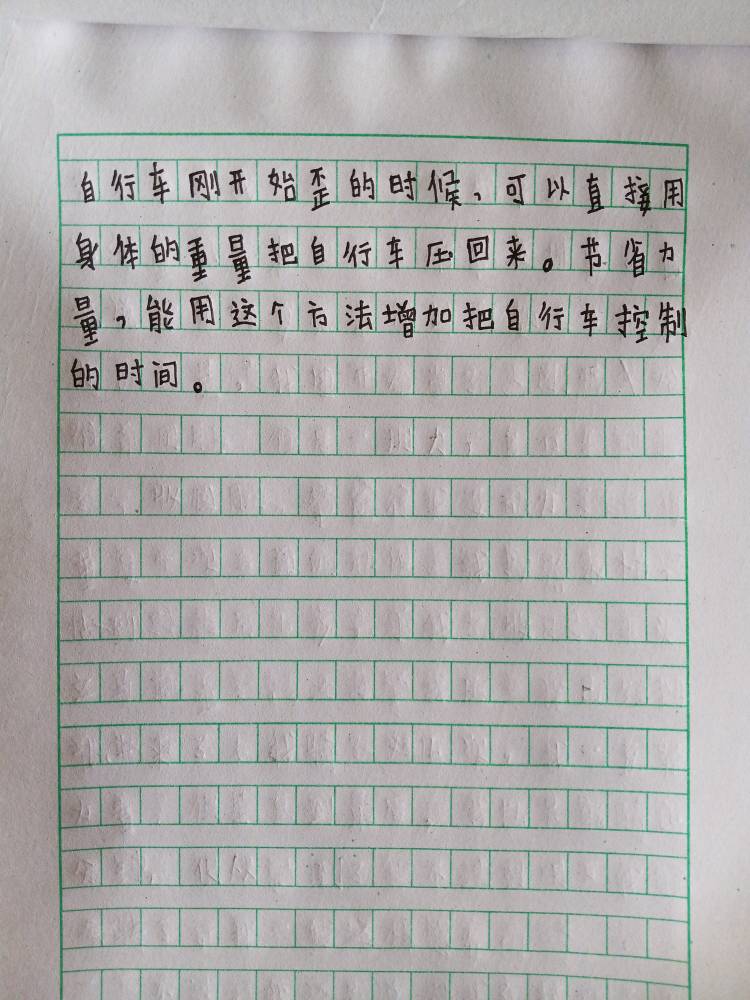 自行车刚开始歪的时候，可以直接用
身体的重量把自行车压回来。节省力
量，能用这个方法增加把自行车控制
的时间。